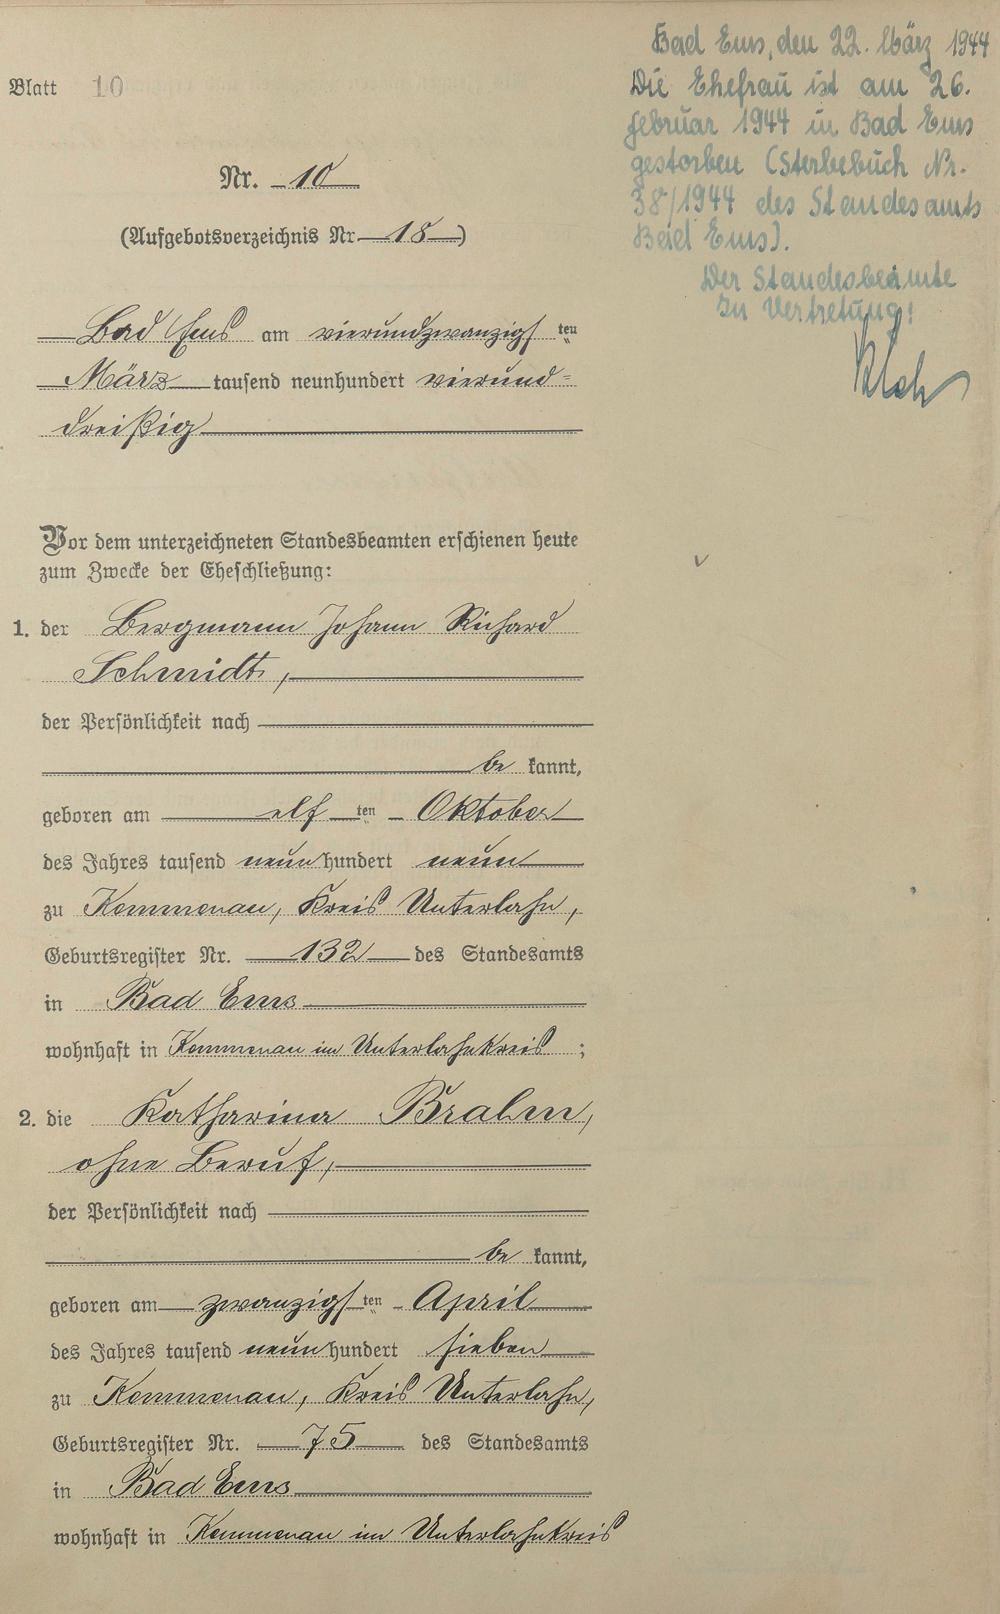 Blatt 10
Nr. 10
(Aufgebotsverzeichnis Nr. 18)
Bad Ems am vierundzwanzigs ten
März tausend neunhundert vierund=
dreißig
Vor dem unterzeichneten Standesbeamten erschienen heute
zum Zwecke der Eheschließung:
1. der Bergmann Johann Richard
Schmidt,
der Persönlichkeit nach
be kannt,
geboren am elf ten Oktober
des Jahres tausend neun hundert neun
zu Kemmenau, Kreis Unterlahn,
Geburtsregister Nr. 132 des Standesamts
in Bad Ems
wohnhaft in Kemmenau im Unterlahnkreis ;
2. die Katharina Bralm,
ohne Beruf,
der Persönlichkeit nach
be kannt,
geboren am zwanzigs ten April
des Jahres tausend neun hundert sieben
zu Kemmenau, Kreis Unterlahn,
Geburtsregister Nr. 75 des Standesamts
in Bad Ems
wohnhaft in Kemmenau im Unterlahnkreis
Bad Ems, den 22. März 1944
Die Ehefrau ist am 26.
Februar 1944 in Bad Ems
gestorben (Sterbebuch Nr.
38/1944 des Standesamts
Bad Ems).
Der Standesbeamte
In Vertretung!